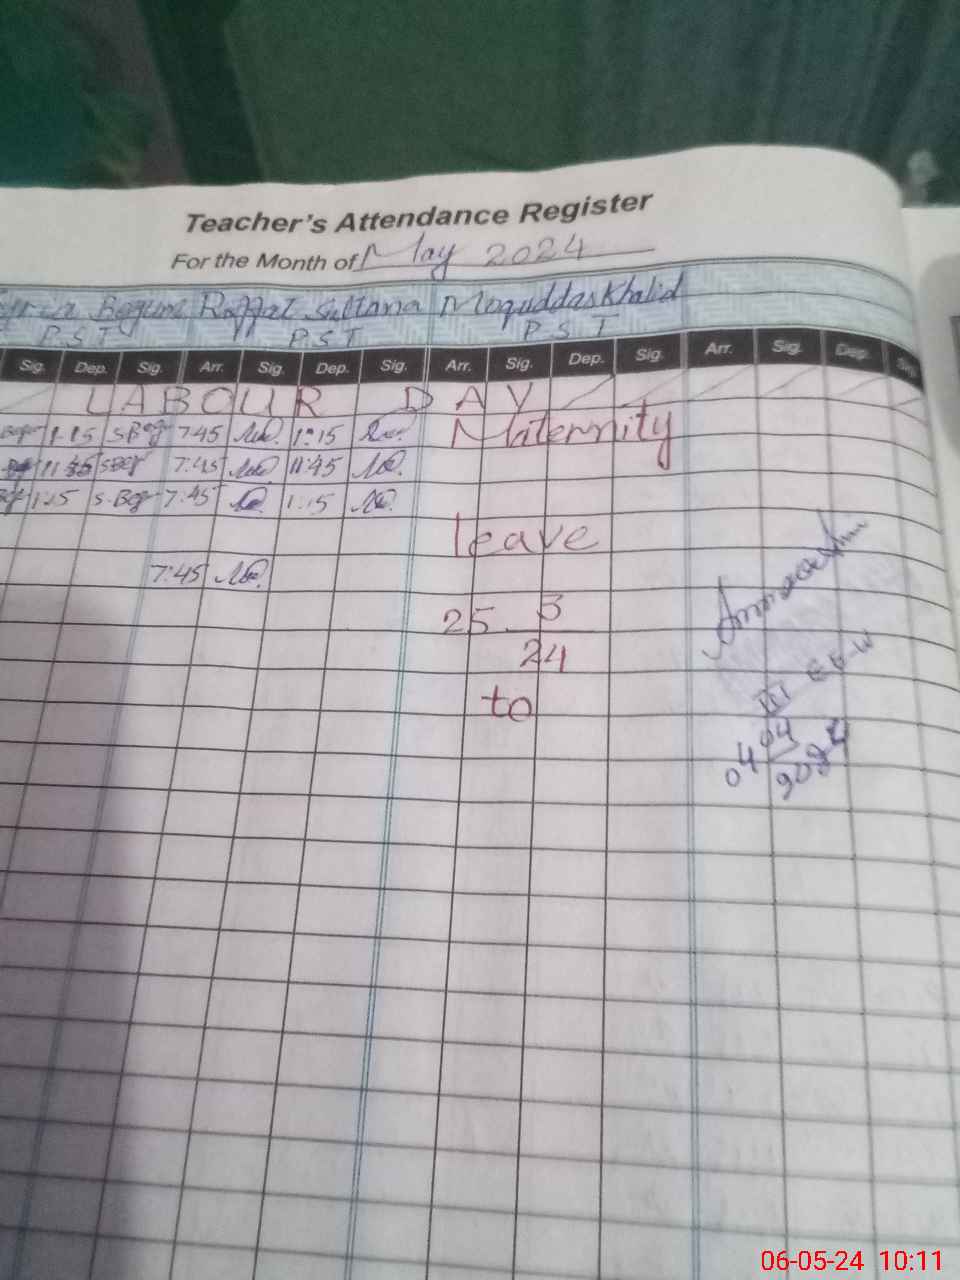 Teacher's Attendance Register
For the Month of May 2024
Begum Raffat Sultana Moquddas Khalid
P.S.T P.S.T P.S.T
Sig. Dep. Sig. Arr. Sig. Dep. Sig. Arr. Sig. Dep. Sig. Arr. Sig. Dep. Sig.
LABOUR DAY
1:15 S.Beg 7:45 1:15 Maternity
11:45 S.Beg 7:45 11:45
1:15 S.Beg 7:45 1:15
leave
7:45
25. 3
24
to
04 04
2024
06-05-24 10:11